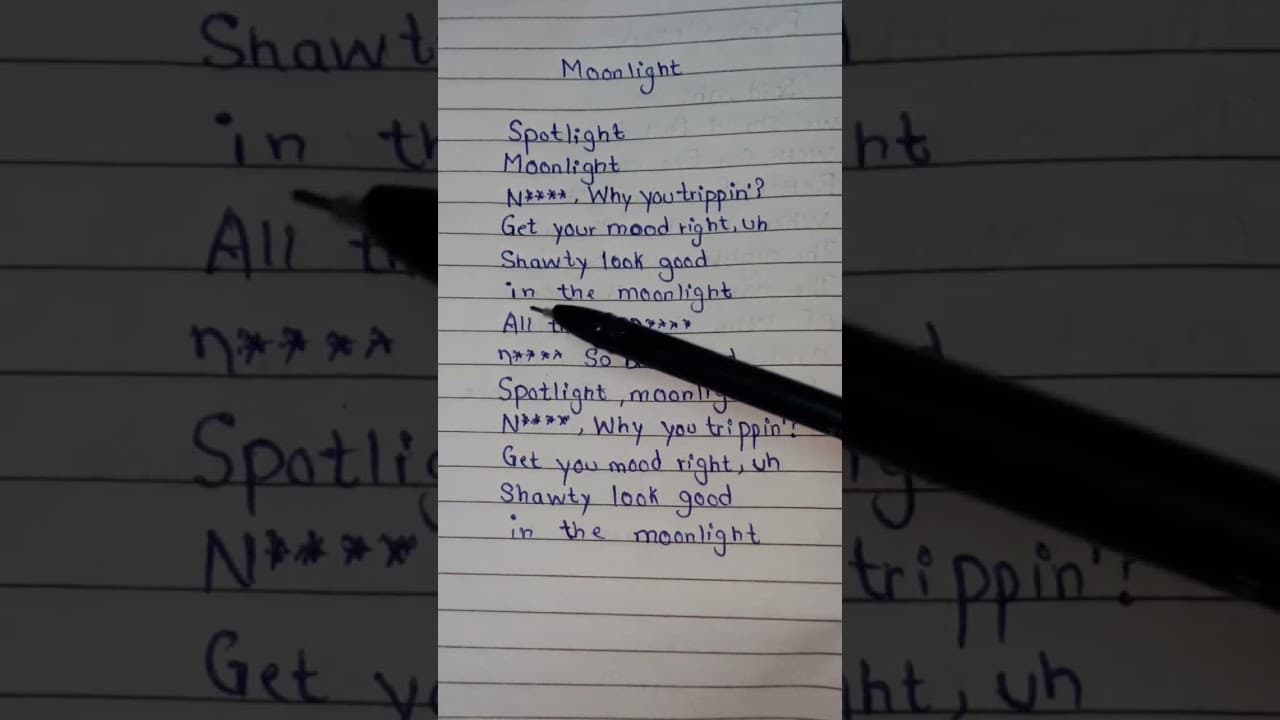 Moonlight
Spotlight
Moonlight
N****, Why you trippin'?
Get your mood right, uh
Shawty look good
in the moonlight
All
n**** So
Spotlight,
N****, Why you trippin'?
Get you mood right, uh
Shawty look good
in the moonlight